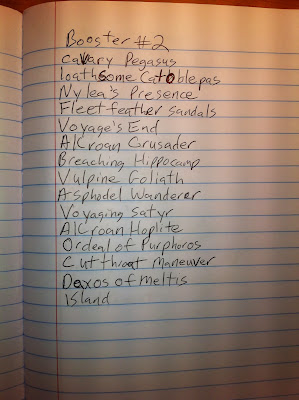 Booster #2
cavary Pegasus
loathsome Catoblepas
Nylea's Presence
Fleetfeather sandals
Voyage's End
AlCroan Crusader
Breaching Hippocamp
Vulpine Goliath
Asphodel Wanderer
Voyaging satyr
AlCroan Hoplite
Ordeal of Purphoros
Cutthroat Maneuver
Daxos of meltis
island